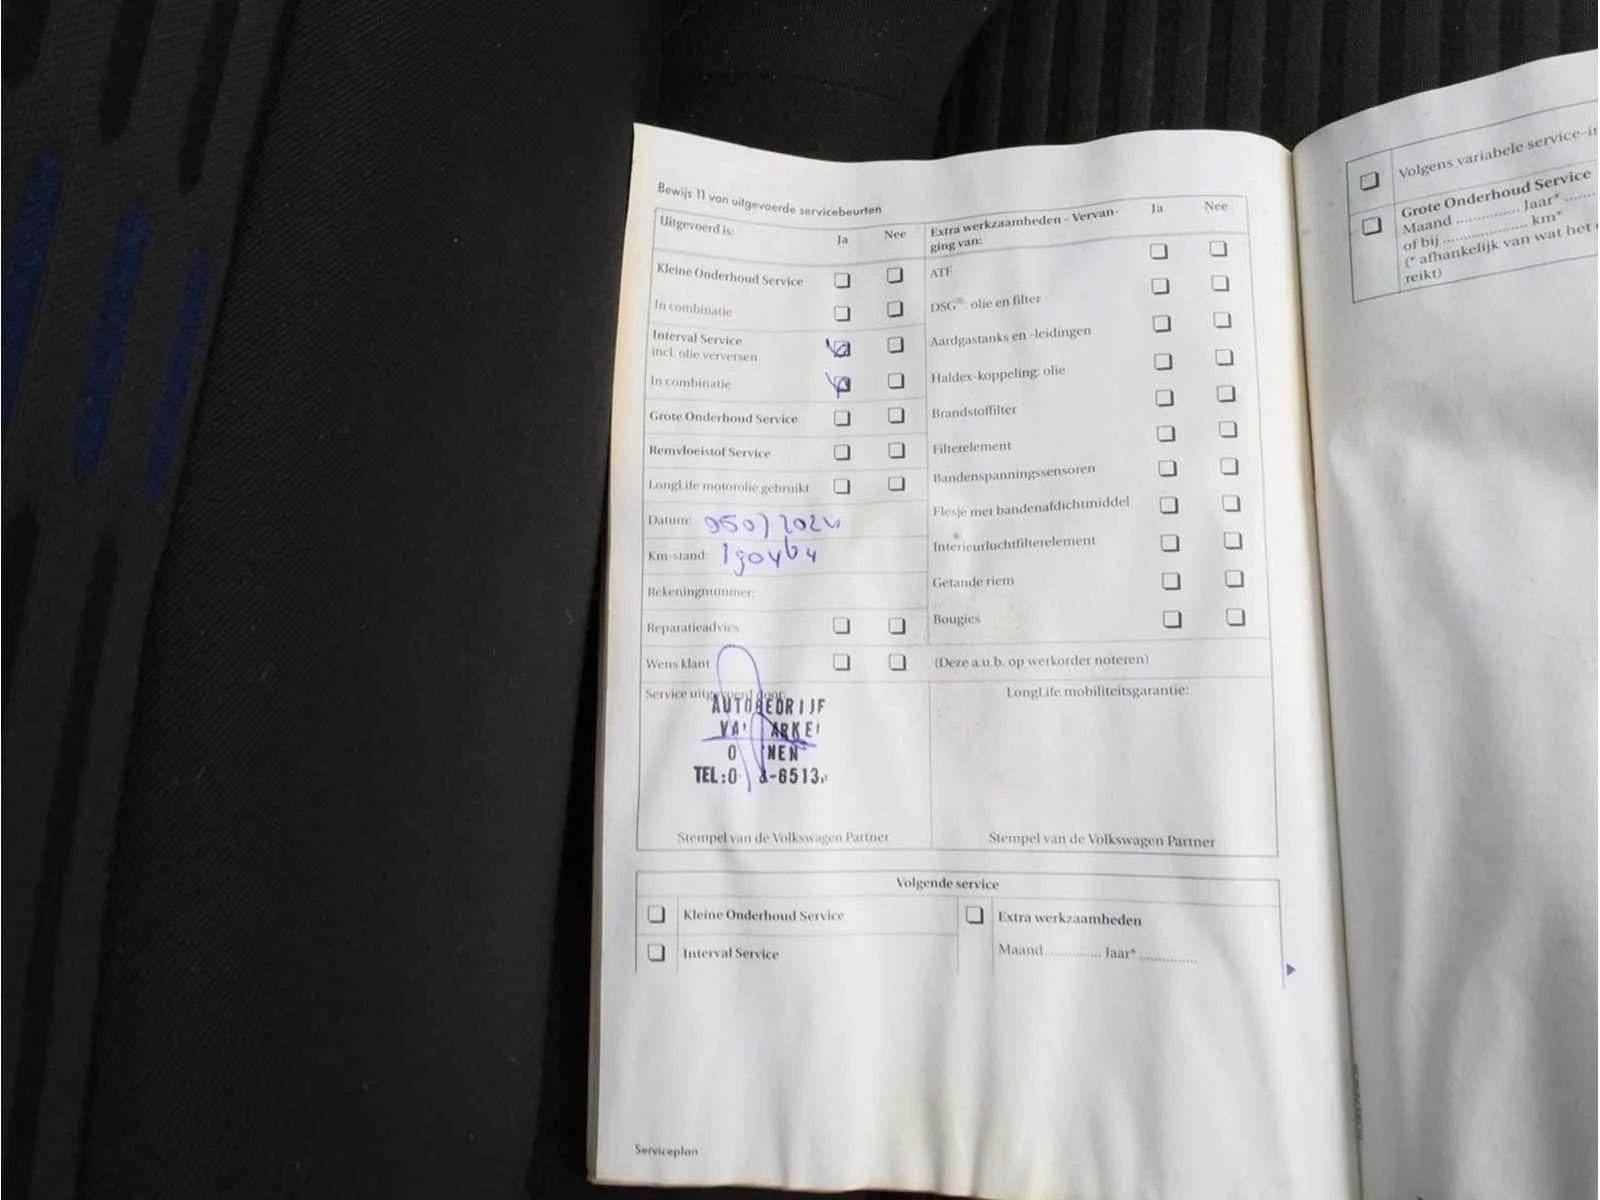 Bewijs 11 van uitgevoerde servicebeurten
Uitgevoerd is: Ja Nee
Kleine Onderhoud Service
In combinatie
Interval Service
incl. olie verversen
In combinatie
Grote Onderhoud Service
Remvloeistof Service
LongLife motorolie gebruikt
Datum:
Km-stand: 190464
Rekeningnummer:
Reparatieadvies
Wens klant
Service uitgevoerd door:
AUTOBEDRIJF
TEL:0
-6513
Stempel van de Volkswagen Partner
Extra werkzaamheden - Vervan-
ging van: Ja Nee
ATF
DSG®: olie en filter
Aardgastanks en -leidingen
Haldex-koppeling: olie
Brandstoffilter
Filterelement
Bandenspanningssensoren
Flesje met bandenafdichtmiddel
Interieurluchtfilterelement
Getande riem
Bougies
(Deze a.u.b. op werkorder noteren)
LongLife mobiliteitsgarantie:
Stempel van de Volkswagen Partner
Volgende service
Kleine Onderhoud Service
Interval Service
Extra werkzaamheden
Maand .............. Jaar* ..............
Serviceplan
Volgens variabele
Grote Onderhoud Service
Maand ............... Jaar* .......
of bij .................... km*
(* afhankelijk van wat het
reikt)